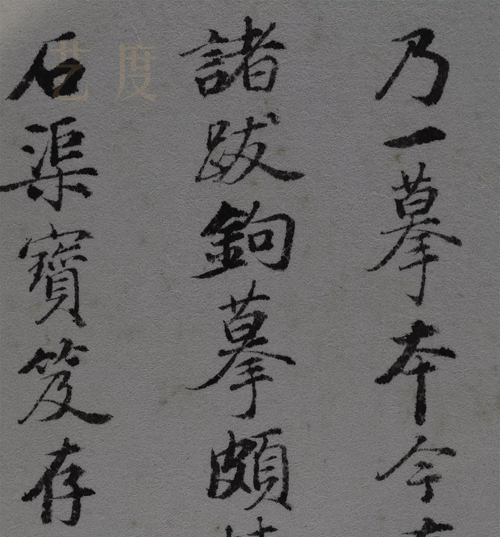 乃一摹本今
諸跋鉤摹頗
石渠寶笈存
艺度